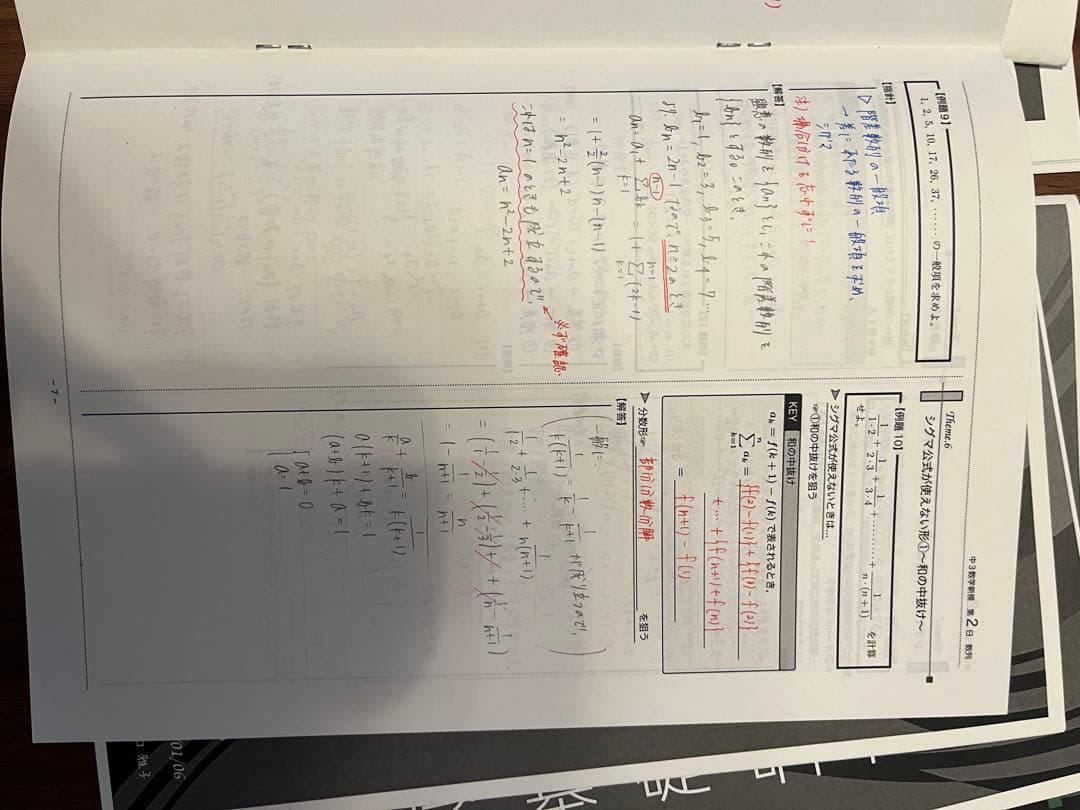 中3数学新規 第2日 数列
【例題9】
1, 2, 5, 10, 17, 26, 37, ……の一般項を求めよ。
【指針】
▷階差数列の一般項
→差にあたる数列の一般項を求め、
シグマ
注) 場合分けを忘れずに!
【解答】
題意の数列を{an}とし、これの階差数列を
{bn}とする。このとき、
b1=1, b2=3, b3=5, b4=7…
より、bn=2n-1 なので、n≧2のとき
an=a1+Σ[k=1→n-1]bk=1+Σ[k=1→n-1](2k-1)
=1+2/2(n-1)n-(n-1)
=n²-2n+2
これはn=1のときも成立するので、
必ず確認
an=n²-2n+2
Theme.6
シグマ公式が使えない形①~和の中抜け~
【例題10】
1/(1・2)+1/(2・3)+1/(3・4)+………+1/(n・(n+1)) を計算
せよ。
➤シグマ公式が使えないときは…
☞①和の中抜けを狙う
KEY 和の中抜け
ak=f(k+1)-f(k)で表されるとき,
Σ[k=1→n]ak={f(2)-f(1)}+{f(3)-f(2)}
+…+{f(n+1)+f(n)}
=f(n+1)-f(1)
➤分数形☞ 部分分数分解 を狙う
【解答】
(一般に、
1/(k(k+1))=1/k-1/(k+1) が成り立つので、)
1/(1・2)+1/(2・3)+…+1/(n(n+1))
=(1-1/2)+(1/2-1/3)+…+(1/n-1/(n+1))
=1-1/(n+1)=n/(n+1)
a/k+b/(k+1)=1/(k(k+1))
a(k+1)+bk=1
(a+b)k+a=1
{a+b=0
a=1
-7-
01/06
雅子